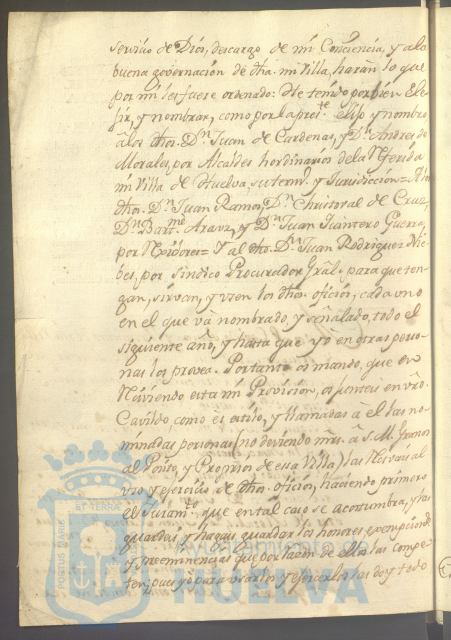 servicio de Dios, descargo de mi Conciencia, y a la
buena governacion de dha. mi Villa, harán lo que
por mi les fuere ordenado: He tenido por bien Ele-
gir, y nombrar, como por la pres.te elijo, y nombro
à los dhos. D.n Juan de Cardenas, y D.n Andres de
Morales, por Alcaldes hordinarios de la Referida
mi Villa de Huelva, su term.o y Jurisdiccion=
dhos. D.n Juan Ramos, D.n Christoval de Cruz,
D.n Bart.me Arauz, y D.n Juan Quintero Guerra,
por Rexidores= Y al dho. D.n Juan Rodriguez Nie-
bes, por Sindico Procurador Gràl. para que ten-
gan, sirvan, y usen los dhos. oficios, cada uno
en el que và nombrado, y señalado, todo el
siguiente año, y hasta que yo en otras perso-
nas los provea. Portanto os mando, que en
Reciviendo esta mi Provision, os junteis en vrò.
Cavildo como es estilo, y llamadas a el las no-
minadas personas (no deviendo mrs. à S. M. Granos
al Posito, y Proprios de esa Villa) las Recivais al
uso y exercicio de dhos. oficios, haciendo primero
el Juram.to que en tal caso se acostumbra, y las
guardeis y hagais guardar los honores, exempciones
y preeminencias que por razon de ellos las compe-
ten; que yo para usarlos y exercerlos las doy todo
PORTUS MARIS
ET TERRÆ
CUSTODIA
Ayuntamiento
HUELVA